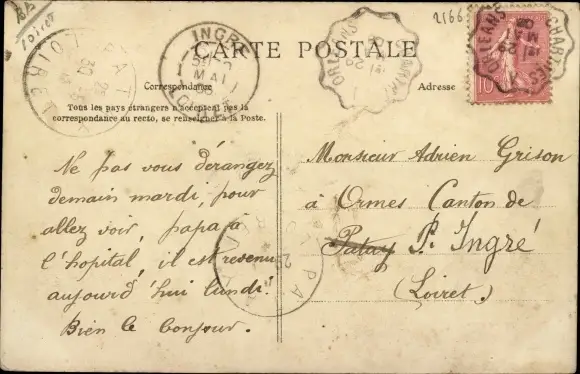 2166
CARTE POSTALE
Correspondance
Adresse
Tous les pays étrangers n'acceptent pas la
correspondance au recto, se renseigner à la Poste.
INGRÉ
MAI
LOIRET
ORLEANS
ORLEANS
CHARTRES
29
MAI
10
Ne pas vous dérangez
demain mardi, pour
allez voir, papa à
l'hopital, il est revenu
aujourd'hui lundi!
Bien le bonjour.
Monsieur Adrien Grison
à Ormes Canton de
Patay P. Ingré
(Loiret).